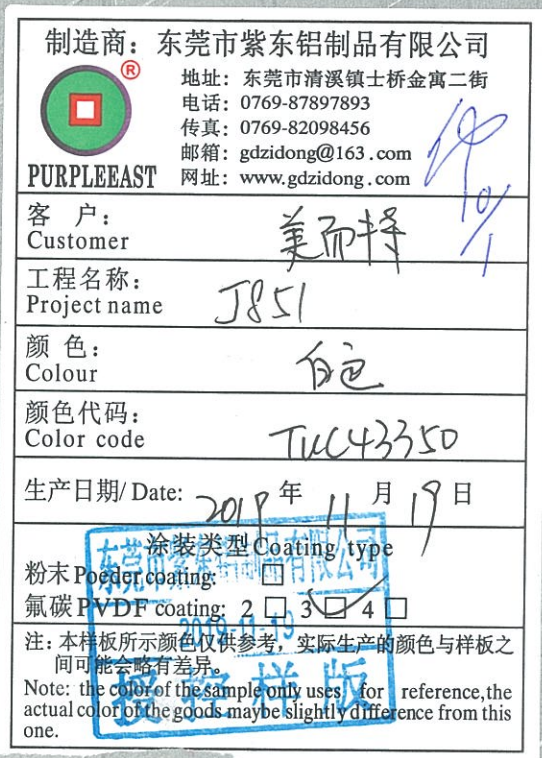 制造商：东莞市紫东铝制品有限公司
®
地址：东莞市清溪镇士桥金寓二街
电话：0769-87897893
传真：0769-82098456
邮箱：gdzidong@163.com
网址：www.gdzidong.com
PURPLEEAST
10/1
客 户：
Customer
美而择
工程名称：
Project name
J851
颜 色：
Colour
白色
颜色代码：
Color code
TUC43350
生产日期/Date: 2019 年 11 月 19 日
涂装类型Coating type
粉末Poeder coating: □
氟碳PVDF coating: 2 □ 3 □ 4 □
注：本样板所示颜色仅供参考，实际生产的颜色与样板之
间可能会略有差异。
Note: the color of the sample only uses for reference,the
actual color of the goods maybe slightly difference from this
one.
东莞市紫东铝制品有限公司
2019-11-19
样版